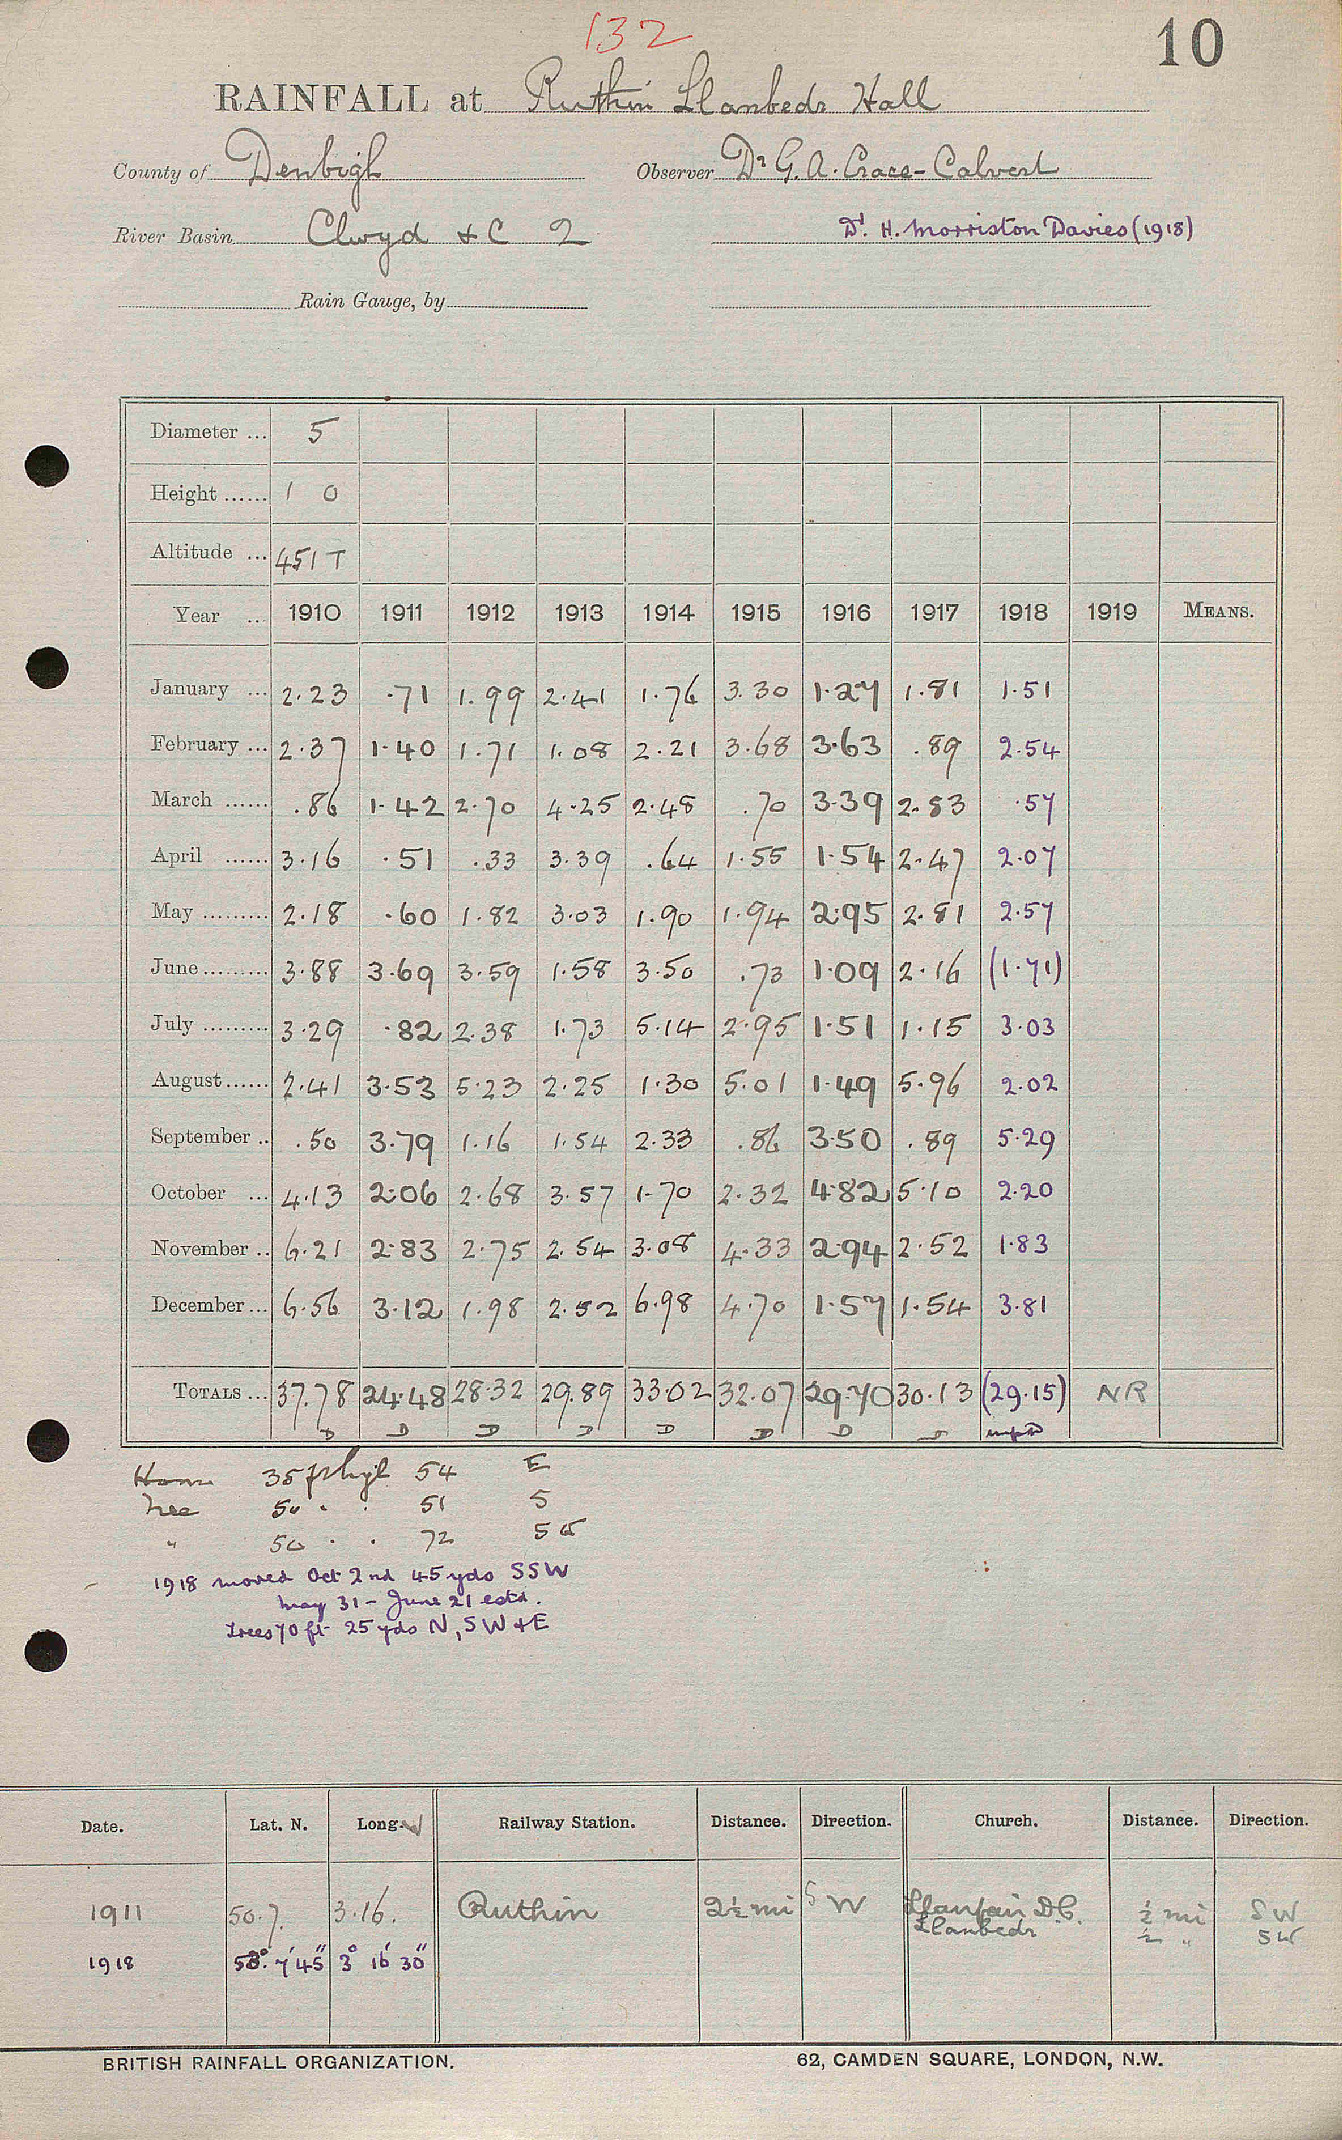 132
10
RAINFALL at Ruthin Llanbedr Hall
County of Denbigh Observer Dr G. A. Crace-Calvert
River Basin Clwyd & C 2 Dr. H. Morriston Davies (1918)
Rain Gauge, by
Diameter ... 5
Height ...... 1 0
Altitude ... 451 T
Year ... 1910 1911 1912 1913 1914 1915 1916 1917 1918 1919 MEANS.
January ... 2.23 .71 1.99 2.41 1.76 3.30 1.27 1.81 1.51
February ... 2.37 1.40 1.71 1.08 2.21 3.68 3.63 .89 2.54
March ...... .86 1.42 2.70 4.25 2.48 .70 3.39 2.83 .57
April ...... 3.16 .51 .33 3.39 .64 1.55 1.54 2.47 2.07
May ......... 2.18 .60 1.82 3.03 1.90 1.94 2.95 2.81 2.57
June ......... 3.88 3.69 3.59 1.58 3.50 .73 1.09 2.16 (1.71)
July ......... 3.29 .82 2.38 1.73 5.14 2.95 1.51 1.15 3.03
August ...... 2.41 3.53 5.23 2.25 1.30 5.01 1.49 5.96 2.02
September .. .50 3.79 1.16 1.54 2.33 .86 3.50 .89 5.29
October ... 4.13 2.06 2.68 3.57 1.70 2.32 4.82 5.10 2.20
November .. 6.21 2.83 2.75 2.54 3.08 4.33 2.94 2.52 1.83
December ... 6.56 3.12 1.98 2.52 6.98 4.70 1.57 1.54 3.81
TOTALS ... 37.78 24.48 28.32 29.89 33.02 32.07 29.70 30.13 (29.15) NR
D D D D D D D
35 ft high 54 E
Tree 50 " " 51 S
" 50 " " 72
1918 moved Oct 2nd 45 yds SSW
May 31 - June 21 estd.
trees 70 ft 25 yds N, SW & E
Date. Lat. N. Long. W Railway Station. Distance. Direction. Church. Distance. Direction.
1911 50.7. 3.16. Ruthin 2½ mi SW Llanfair D.C. ½ mi SW
Llanbedr ½ " SW
1918 53° 7' 45" 3° 16' 30"
BRITISH RAINFALL ORGANIZATION. 62, CAMDEN SQUARE, LONDON, N.W.